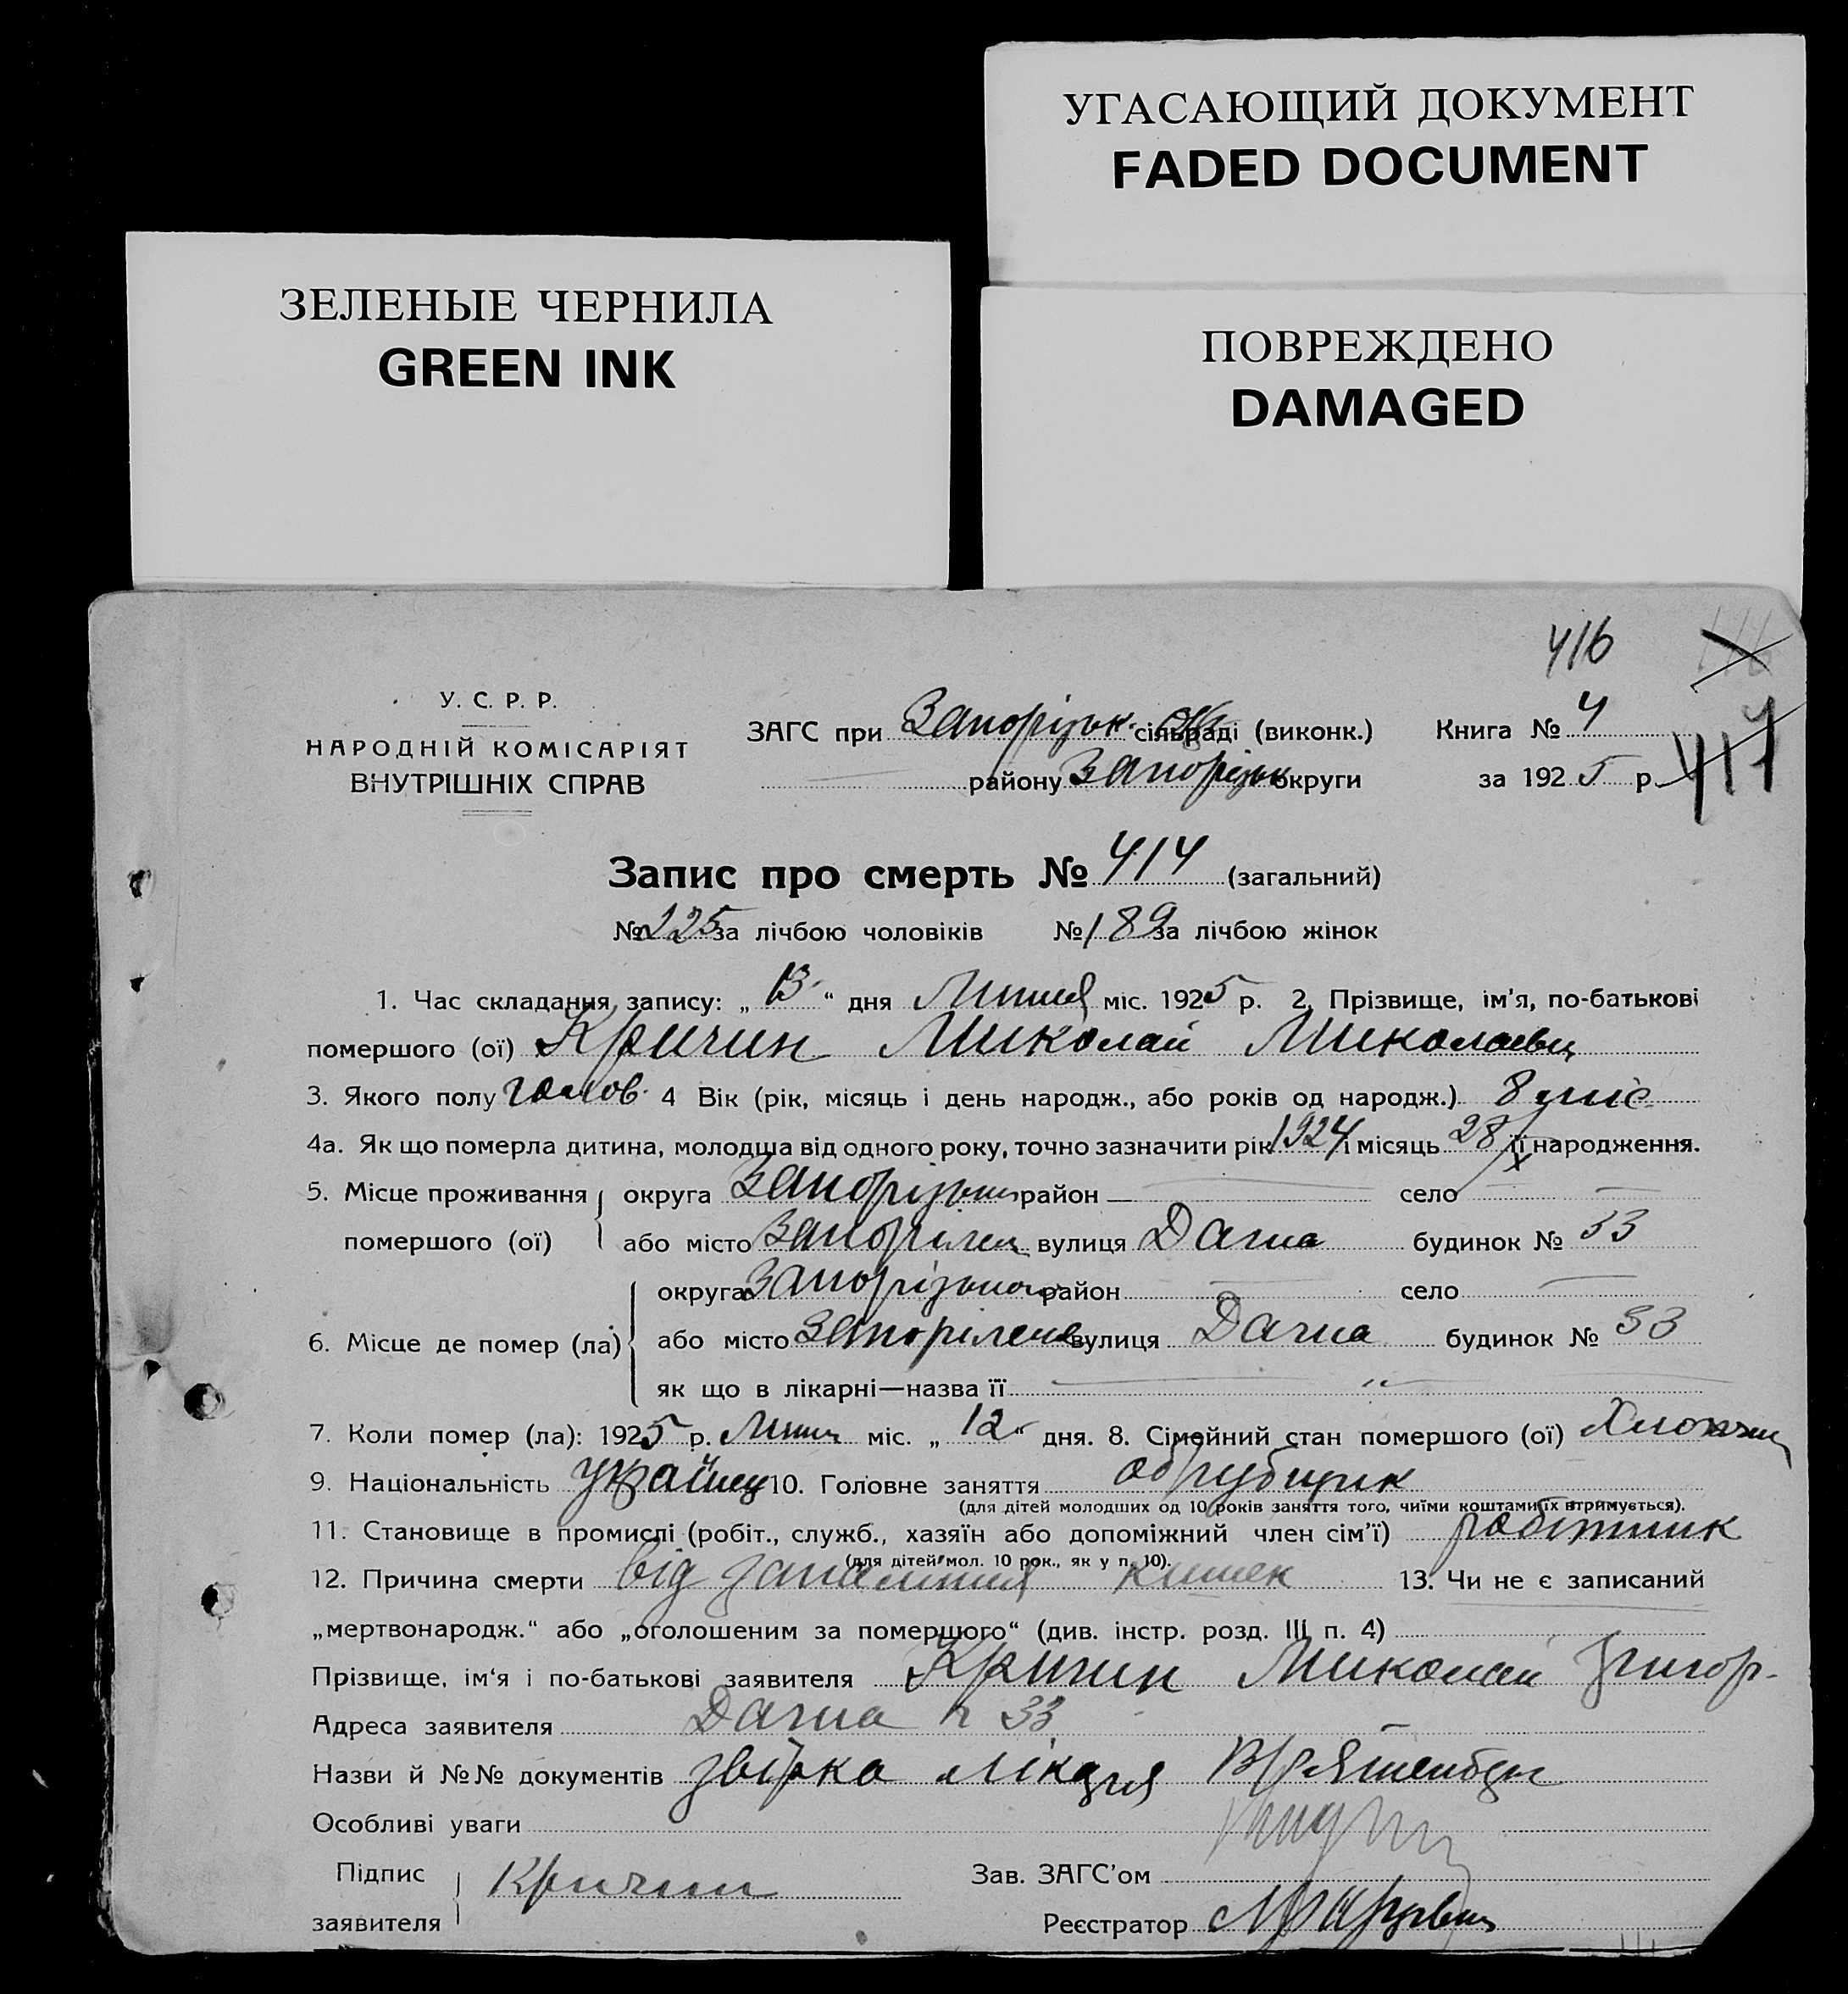 УГАСАЮЩИЙ ДОКУМЕНТ
FADED DOCUMENT
ЗЕЛЕНЫЕ ЧЕРНИЛА
GREEN INK
ПОВРЕЖДЕНО
DAMAGED
416
У. С. Р. Р.
НАРОДНІЙ КОМІСАРІЯТ
ВНУТРІШНІХ СПРАВ
ЗАГС при Запорізьк. сільраді (виконк.) Книга № 4
району Запорізьк округи за 1925 р. 417
Запис про смерть № 414 (загальний)
№ 225 за лічбою чоловіків № 189 за лічбою жінок
1. Час складання запису: „13“ дня Липня міс. 1925 р. 2. Прізвище, ім'я, по-батькові
помершого (ої) Кричин Миколай Миколаєвич
3. Якого полу чолов. 4 Вік (рік, місяць і день народж., або років од народж.) 8 міс
4а. Як що померла дитина, молодша від одного року, точно зазначити рік 1924 і місяць 28/X її народження.
5. Місце проживання округа Запорізька район — село —
помершого (ої) або місто Запоріжжя вулиця Дачна будинок № 33
округа Запорізька район — село —
6. Місце де помер (ла) або місто Запоріжжя вулиця Дачна будинок № 33
як що в лікарні—назва її — „ —
7. Коли помер (ла): 1925 р. Липня міс. „12“ дня. 8. Сімейний стан помершого (ої) Хлопчик
9. Національність українец 10. Головне заняття обрубщик
(для дітей молодших од 10 років заняття того, чиїми коштами їх втримується).
11. Становище в промислі (робіт., служб., хазяїн або допоміжний член сім'ї) робітник
(для дітей мол. 10 рок., як у п. 10).
12. Причина смерти від запалення кишек 13. Чи не є записаний
„мертвонародж.“ або „оголошеним за помершого“ (див. інстр. розд. III п. 4)
Прізвище, ім'я і по-батькові заявителя Кричин Миколай Григор.
Адреса заявителя Дачна № 33
Назви й №№ документів звірка лікаря
Особливі уваги
Підпис Кричин Зав. ЗАГС'ом
заявителя Реєстратор